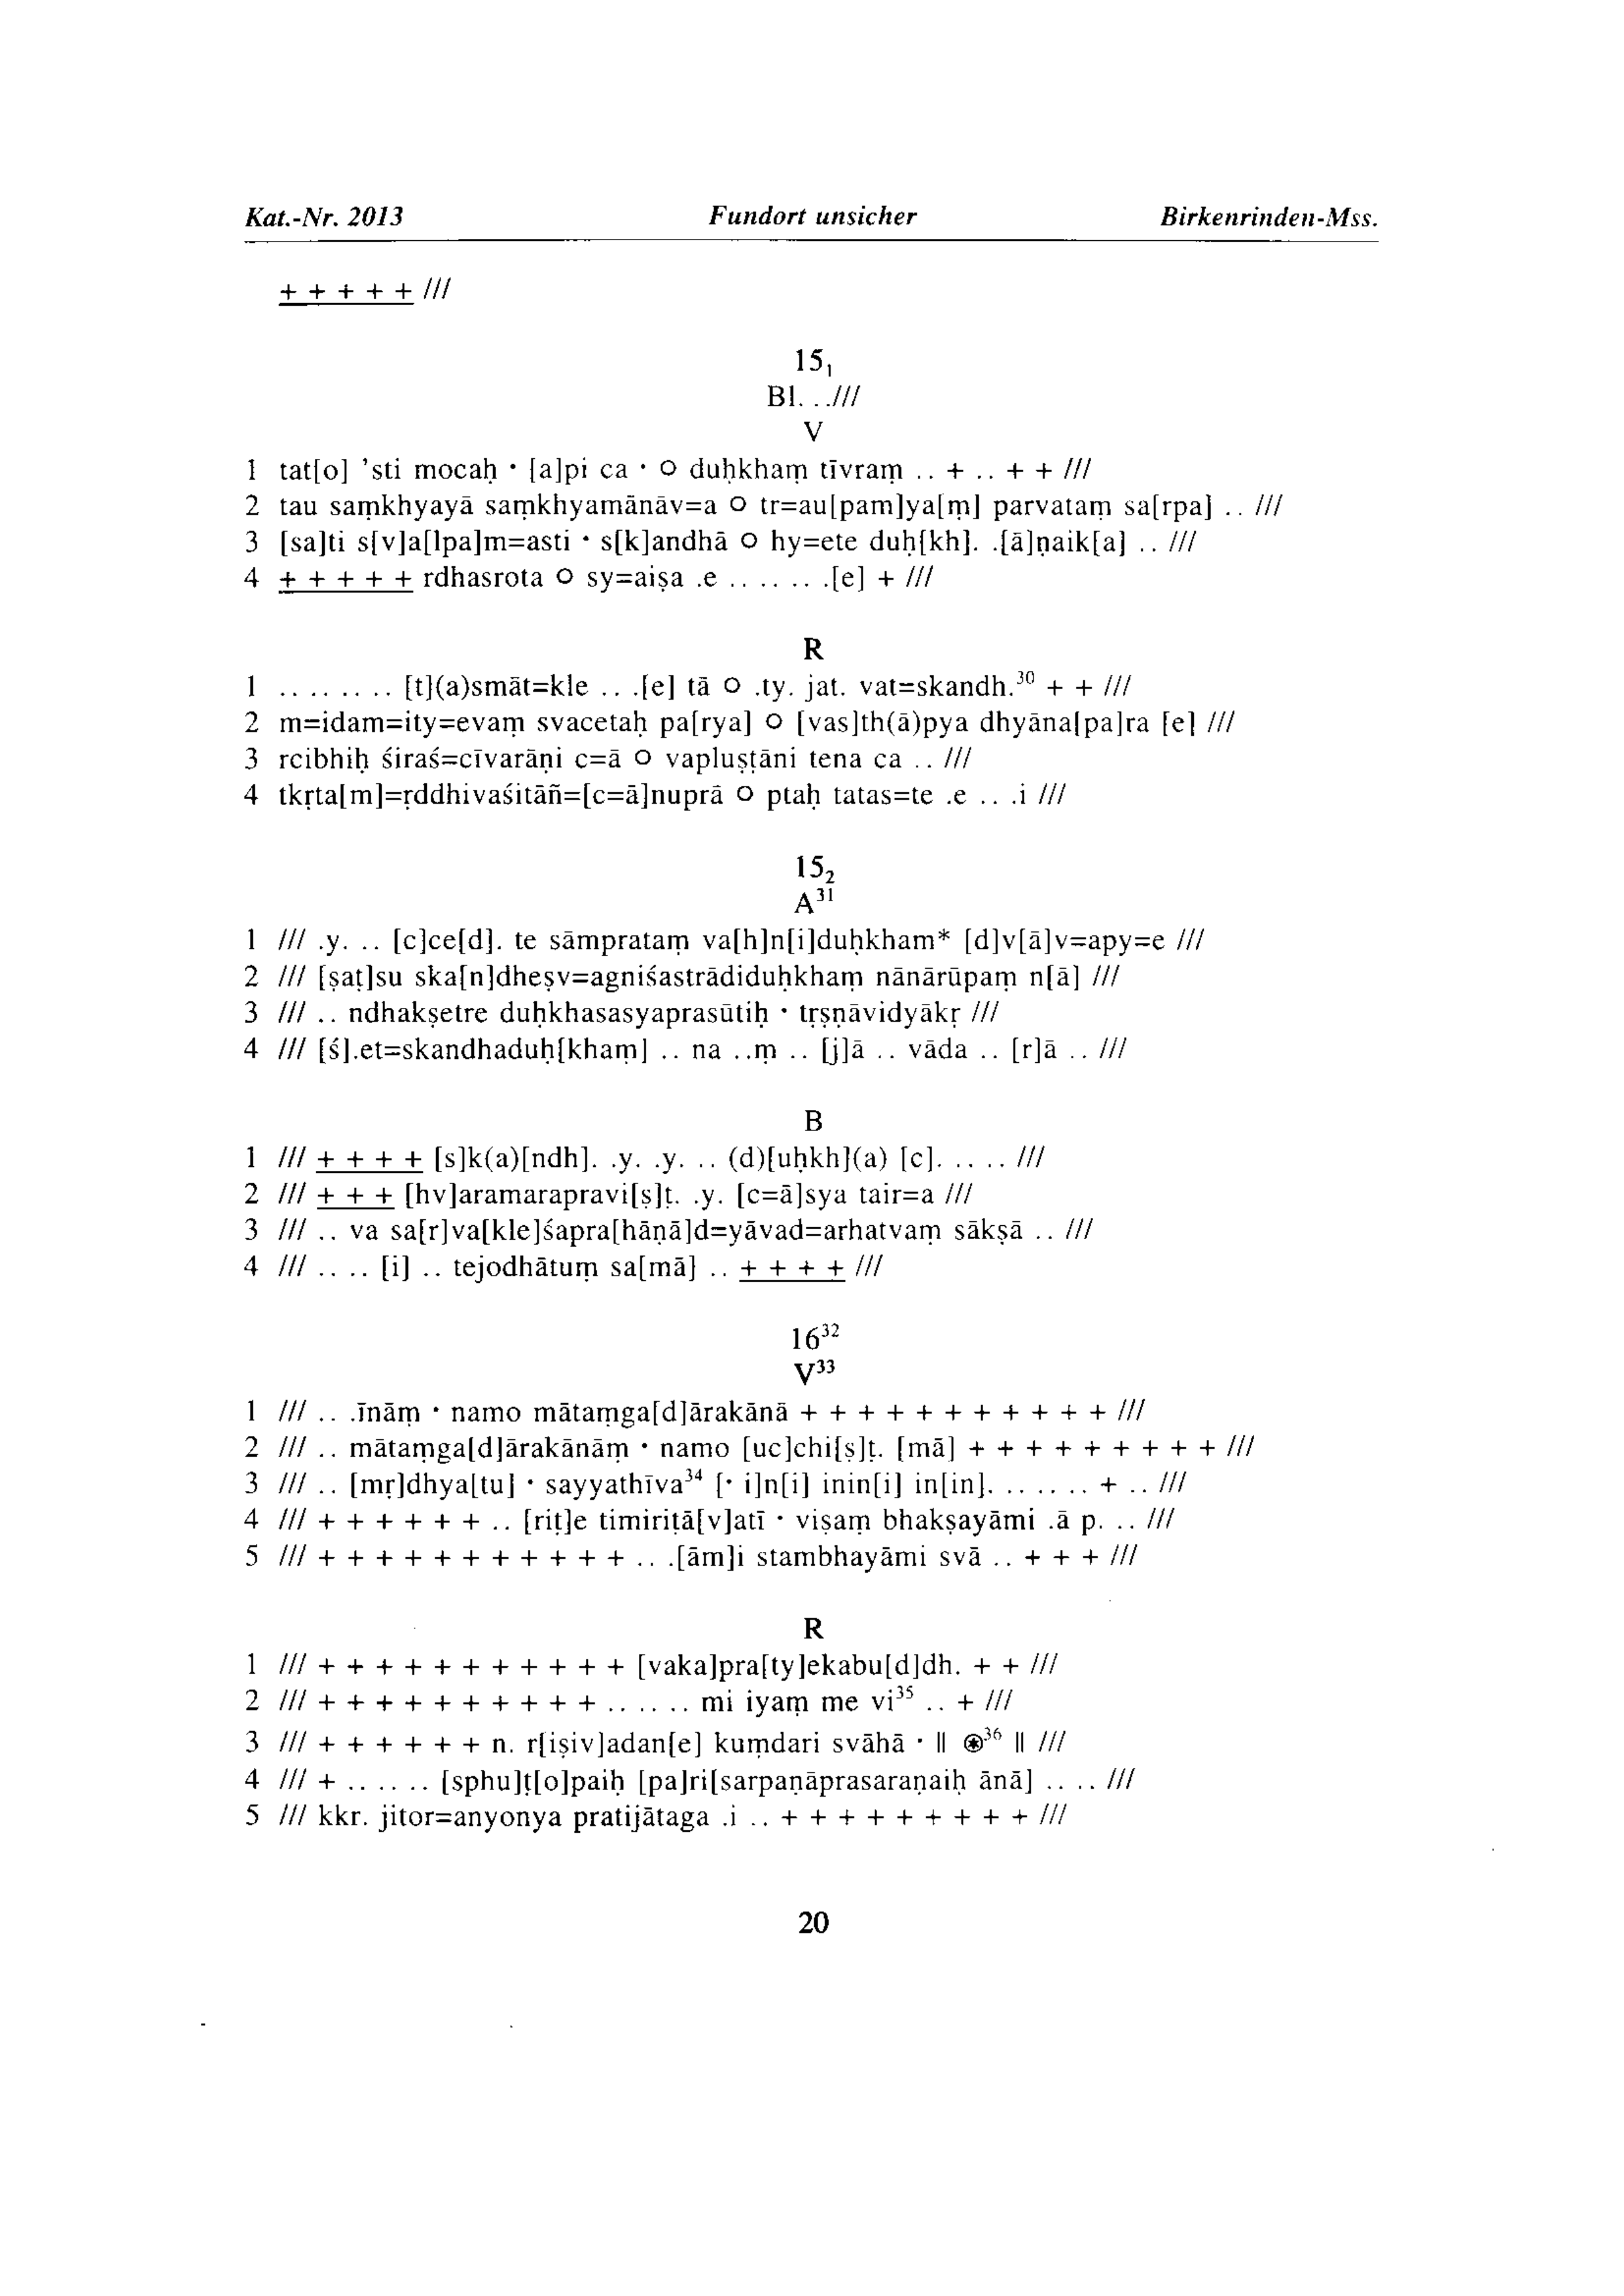 Kat.-Nr. 2013 Fundort unsicher Birkenrinden-Mss.
+ + + + + ///
15₁
Bl. ..///
V
1 tat[o] ’sti mocaḥ • [a]pi ca • O duḥkhaṃ tīvraṃ .. + .. + + ///
2 tau saṃkhyayā saṃkhyamānāv=a O tr=au[pam]ya[ṃ] parvataṃ sa[rpa] .. ///
3 [sa]ti s[v]a[lpa]m=asti • s[k]andhā O hy=ete duḥ[kh]. .[ā]ṇaik[a] .. ///
4 + + + + + rdhasrota O sy=aiṣa .e .. .. .. .[e] + ///
R
1 .. .. .. .. [t](a)smāt=kle .. .[e] tā O .ty. jat. vat=skandh.³⁰ + + ///
2 m=idam=ity=evaṃ svacetaḥ pa[rya] O [vas]th(ā)pya dhyāna[pa]ra [e] ///
3 rcibhiḥ śiraś=cīvarāṇi c=ā O vapluṣṭāni tena ca .. ///
4 tkṛta[m]=ṛddhivaśitāñ=[c=ā]nuprā O ptaḥ tatas=te .e .. .i ///
15₂
A³¹
1 /// .y. .. [c]ce[d]. te sāmprataṃ va[h]n[i]duḥkham* [d]v[ā]v=apy=e ///
2 /// [ṣaṭ]su ska[n]dheṣv=agniśastrādiduḥkhaṃ nānārūpaṃ n[ā] ///
3 /// .. ndhakṣetre duḥkhasasyaprasūtiḥ • tṛṣṇāvidyākṛ ///
4 /// [ś].et=skandhaduḥ[khaṃ] .. na ..ṃ .. [j]ā .. vāda .. [r]ā .. ///
B
1 /// + + + + [s]k(a)[ndh]. .y. .y. .. (d)[uḥkh](a) [c]. .. .. ///
2 /// + + + [hv]aramarapravi[ṣ]ṭ. .y. [c=ā]sya tair=a ///
3 /// .. va sa[r]va[kle]śapra[hāṇā]d=yāvad=arhatvaṃ sākṣā .. ///
4 /// .. .. [i] .. tejodhātuṃ sa[mā] .. + + + + ///
16³²
V³³
1 /// .. .īnāṃ • namo mātaṃga[d]ārakānā + + + + + + + + + + + ///
2 /// .. mātaṃga[d]ārakānāṃ • namo [uc]chi[ṣ]ṭ. [mā] + + + + + + + + + ///
3 /// .. [mṛ]dhya[tu] • sayyathīva³⁴ [• i]n[i] inin[i] in[in]. .. .. .. + .. ///
4 /// + + + + + + .. [riṭ]e timiriṭā[v]atī • viṣaṃ bhakṣayāmi .ā p. .. ///
5 /// + + + + + + + + + + + .. .[āṃ]i stambhayāmi svā .. + + + ///
R
1 /// + + + + + + + + + + + [vaka]pra[ty]ekabu[d]dh. + + ///
2 /// + + + + + + + + + + .. .. .. mi iyaṃ me vi³⁵ .. + ///
3 /// + + + + + + n. r[iṣiv]adan[e] kuṃdari svāhā • || ⊛³⁶ || ///
4 /// + .. .. .. [sphu]ṭ[o]paiḥ [pa]ri[sarpaṇāprasaraṇaiḥ ānā] .. .. ///
5 /// kkr. jitor=anyonya pratijātaga .i .. + + + + + + + + + ///
20